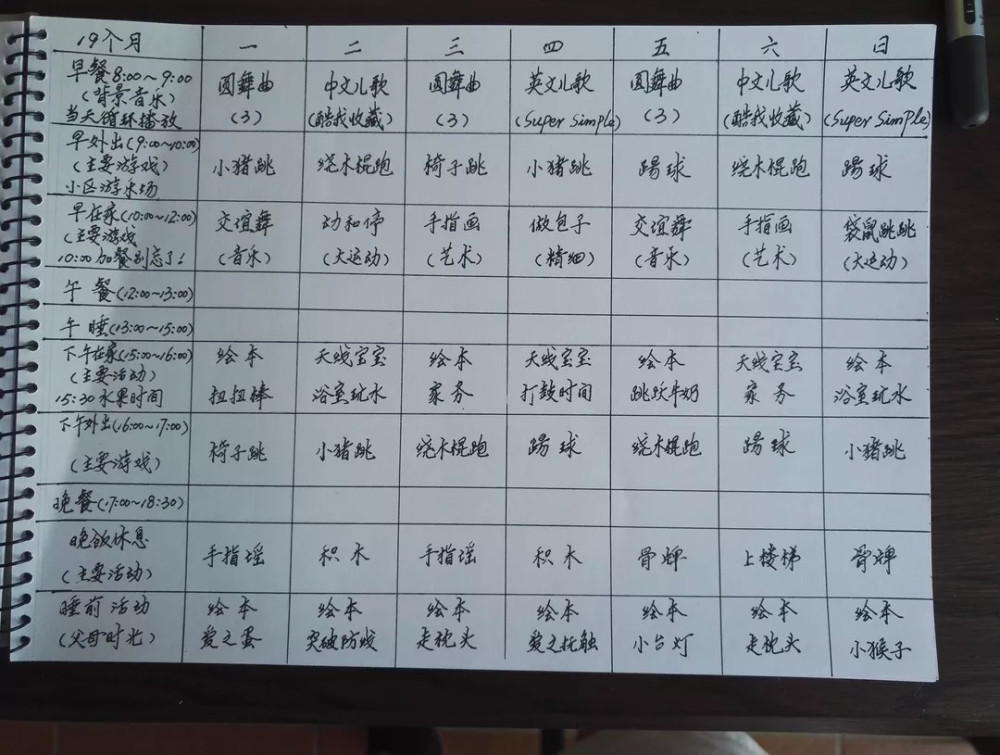 19个月 一 二 三 四 五 六 日
早餐8:00~9:00 圆舞曲 中文儿歌 圆舞曲 英文儿歌 圆舞曲 中文儿歌 英文儿歌
(背景音乐)
当天循环播放 (3) (酷我收藏) (3) (Super Simple) (3) (酷我收藏) (Super Simple)
早外出(9:00~10:00)
(主要游戏) 小猪跳 绕木棍跑 椅子跳 小猪跳 踢球 绕木棍跑 踢球
小区游乐场
早在家(10:00~12:00) 交谊舞 动和停 手指画 做包子 交谊舞 手指画 袋鼠跳跳
(主要游戏
10:00加餐别忘了! (音乐) (大运动) (艺术) (精细) (音乐) (艺术) (大运动)
午餐(12:00~13:00)
午睡(13:00~15:00)
下午在家(15:00~16:00) 绘本 天线宝宝 绘本 天线宝宝 绘本 天线宝宝 绘本
(主要活动)
15:30水果时间 扭扭棒 浴室玩水 家务 打鼓时间 跳跃牛奶 家务 浴室玩水
下午外出(16:00~17:00)
(主要游戏) 椅子跳 小猪跳 绕木棍跑 踢球 绕木棍跑 踢球 小猪跳
晚餐(17:00~18:30)
晚饭休息
(主要活动) 手指瑶 积木 手指瑶 积木 骨牌 上楼梯 骨牌
睡前活动 绘本 绘本 绘本 绘本 绘本 绘本 绘本
(父母时光) 爱之蛋 突破防线 走枕头 爱之抚触 小台灯 走枕头 小猴子